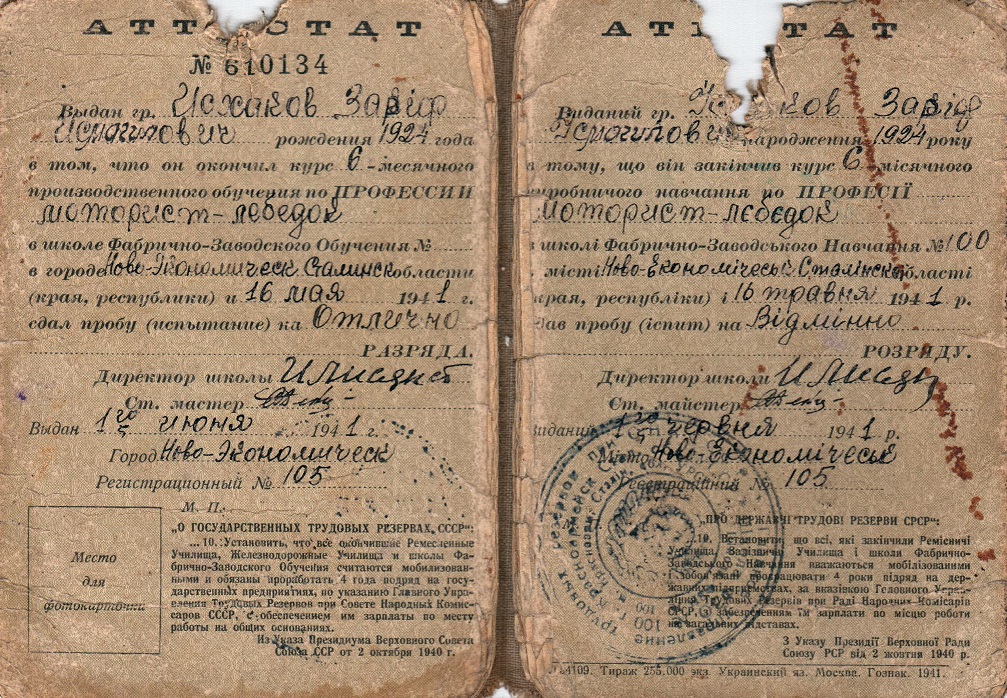 АТТЕСТАТ
№ 610134
Выдан гр. Исхаков Зариф
Исмагилович рождения 1924 года
в том, что он окончил курс 6-месячного
производственного обучения по ПРОФЕССИИ
моторист-лебедок
в школе Фабрично-Заводского Обучения №
в городе Ново-Экономическ Сталинск области
(края, республики) и 16 мая 1941 г.
сдал пробу (испытание) на Отлично
РАЗРЯДА.
Директор школы
Ст. мастер
Выдан 1го июня 1941 г.
Город Ново-Экономическ
Регистрационный № 105
М. П.
Место
для
фотокарточки
„О ГОСУДАРСТВЕННЫХ ТРУДОВЫХ РЕЗЕРВАХ, СССР“:
... 10. Установить, что все окончившие Ремесленные
Училища, Железнодорожные Училища и школы Фа-
брично-Заводского Обучения считаются мобилизован-
ными и обязаны проработать 4 года подряд на госу-
дарственных предприятиях, по указанию Главного Упра-
вления Трудовых Резервов при Совете Народных Комис-
саров СССР, с обеспечением им зарплаты по месту
работы на общих основаниях.
Из Указа Президиума Верховного Совета
Союза ССР от 2 октября 1940 г.
АТЕСТАТ
Виданий гр. Ісхаков Заріф
Ісмагилович народження 1924 року
в тому, що він закінчив курс 6-місячного
виробничого навчання по ПРОФЕСІЇ
моторист-лєбєдок
в школі Фабрично-Заводського Навчання № 100
в місті Ново-Економічеськ Сталінськ області
(края, республіки) і 16 травня 1941 р.
здав пробу (іспит) на Відмінно
РОЗРЯДУ.
Директор школи
Ст. майстер
Виданий 1го червня 1941 р.
Місто Ново-Економічеськ
Реєстраційний № 105
„ПРО ДЕРЖАВНІ ТРУДОВІ РЕЗЕРВИ СРСР“:
... 10. Встановити, що всі, які закінчили Ремісничі
Училища, Залізничні Училища і школи Фабрично-
Заводського Навчання вважаються мобілізованими
і зобов'язані працювати 4 роки підряд на дер-
жавних підприємствах, за вказівкою Головного Управ-
ління Трудових Резервів при Раді Народних Комісарів
СРСР, із забезпеченням їм зарплати по місцю роботи
на загальних підставах.
З Указу Президії Верховної Ради
Союзу РСР від 2 жовтня 1940 р.
№ 4109. Тираж 255.000 экз. Украинский яз. Москва. Гознак. 1941.